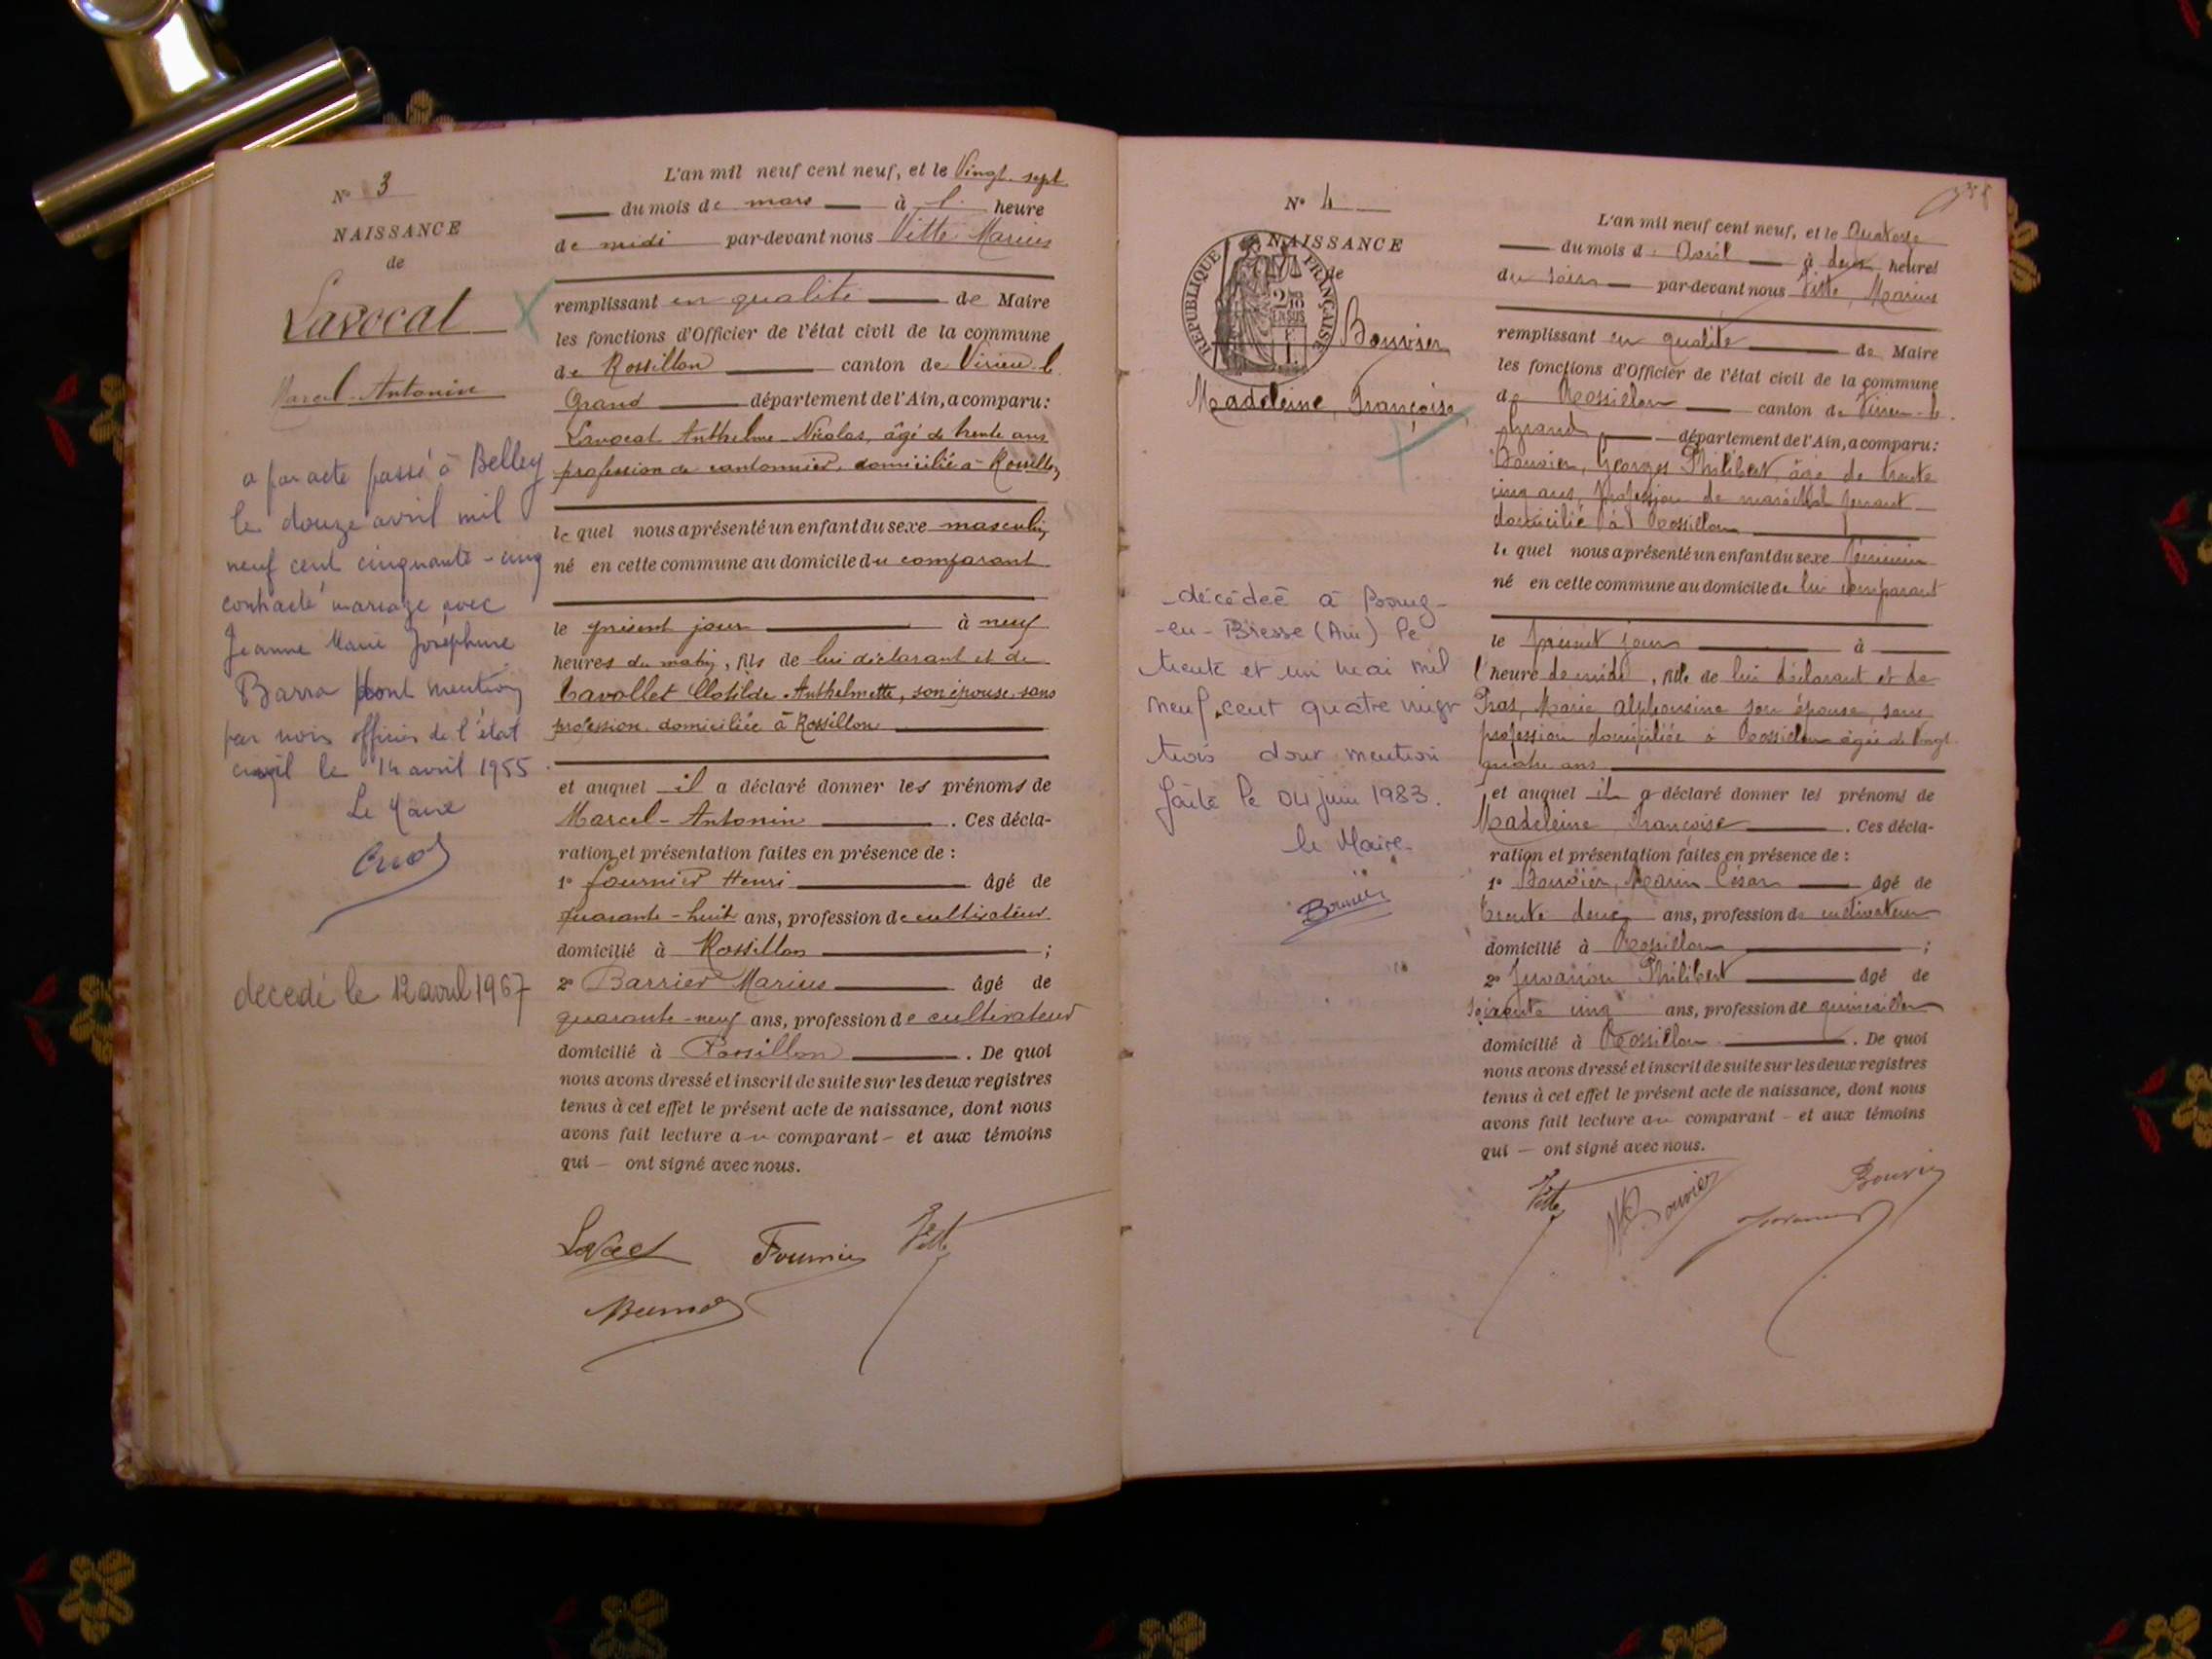 N° 3
NAISSANCE
de
Lavocat
Marcel-Antonin
a par acte passé à Belley
le douze avril mil
neuf cent cinquante-cinq
contracté mariage avec
Jeanne Marie Joséphine
Barra dont mention
par nous officier de l'état
civil le 14 avril 1955
Le Maire
decedé le 12 avril 1967
L'an mil neuf cent neuf, et le Vingt-sept
du mois de mars à l' heure
de midi par-devant nous Vitte Marius
remplissant en qualité de Maire
les fonctions d'Officier de l'état civil de la commune
de Rossillon canton de Virieu-l.
Grand département de l'Ain, a comparu :
Lavocat Anthelme-Nicolas, âgé de trente ans
profession de cantonnier, domicilié à Rossillon
lequel nous a présenté un enfant du sexe masculin
né en cette commune au domicile du comparant
le présent jour à neuf
heures du matin, fils de lui déclarant et de
Clotilde Anthelmette, son épouse, sans
profession domiciliée à Rossillon
et auquel il a déclaré donner les prénoms de
Marcel-Antonin. Ces décla-
ration et présentation faites en présence de :
1° Fournier Henri âgé de
quarante-huit ans, profession de cultivateur
domicilié à Rossillon ;
2° Barrier Marius âgé de
quarante-neuf ans, profession de cultivateur
domicilié à Rossillon. De quoi
nous avons dressé et inscrit de suite sur les deux registres
tenus à cet effet le présent acte de naissance, dont nous
avons fait lecture au comparant - et aux témoins
qui - ont signé avec nous.
Lavocat Fournier Vitte
N° 4
NAISSANCE
de
RÉPUBLIQUE FRANÇAISE
Bouvier
Madeleine, Françoise
décédée à Bourg-
-en-Bresse (Ain) le
trente et un mai mil
neuf cent quatre vingt
trois dont mention
faite le 04 juin 1983.
le Maire.
L'an mil neuf cent neuf, et le quatorze
du mois d'Avril à deux heures
du soir par-devant nous Vitte, Marius
remplissant en qualité de Maire
les fonctions d'Officier de l'état civil de la commune
de Rossillon canton de Virieu-le.
Grand département de l'Ain, a comparu :
Bouvier, Georges Philibert, âgé de trente
cinq ans, profession de maréchal ferrant
domicilié à Rossillon
lequel nous a présenté un enfant du sexe féminin
né en cette commune au domicile de lui comparant
le présent jour à
l'heure de midi, fille de lui déclarant et de
Pras, Marie Alphonsine son épouse, sans
profession domiciliée à Rossillon âgée de vingt
quatre ans
et auquel il a déclaré donner les prénoms de
Madeleine Françoise. Ces décla-
ration et présentation faites en présence de :
1° Bouvier, Marin César âgé de
trente deux ans, profession de cultivateur
domicilié à Rossillon ;
2° Juvanon Philibert âgé de
soixante cinq ans, profession de quincailler
domicilié à Rossillon. De quoi
nous avons dressé et inscrit de suite sur les deux registres
tenus à cet effet le présent acte de naissance, dont nous
avons fait lecture au comparant - et aux témoins
qui - ont signé avec nous.
Vitte M Bouvier Bouvier